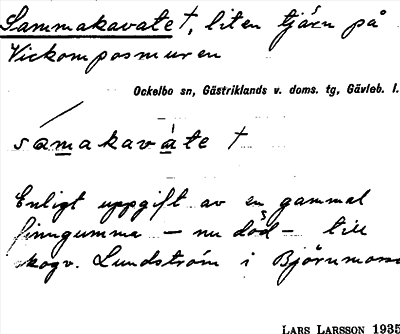 Sammakavate †, liten tjärn på
Vickomposmuren
Ockelbo sn, Gästriklands v. doms. tg, Gävleb. l.
sámakavàte †
Enligt uppgift av en gammal
finngumma – nu död – till
skogv. Lundström i Björnmossa
LARS LARSSON 1935